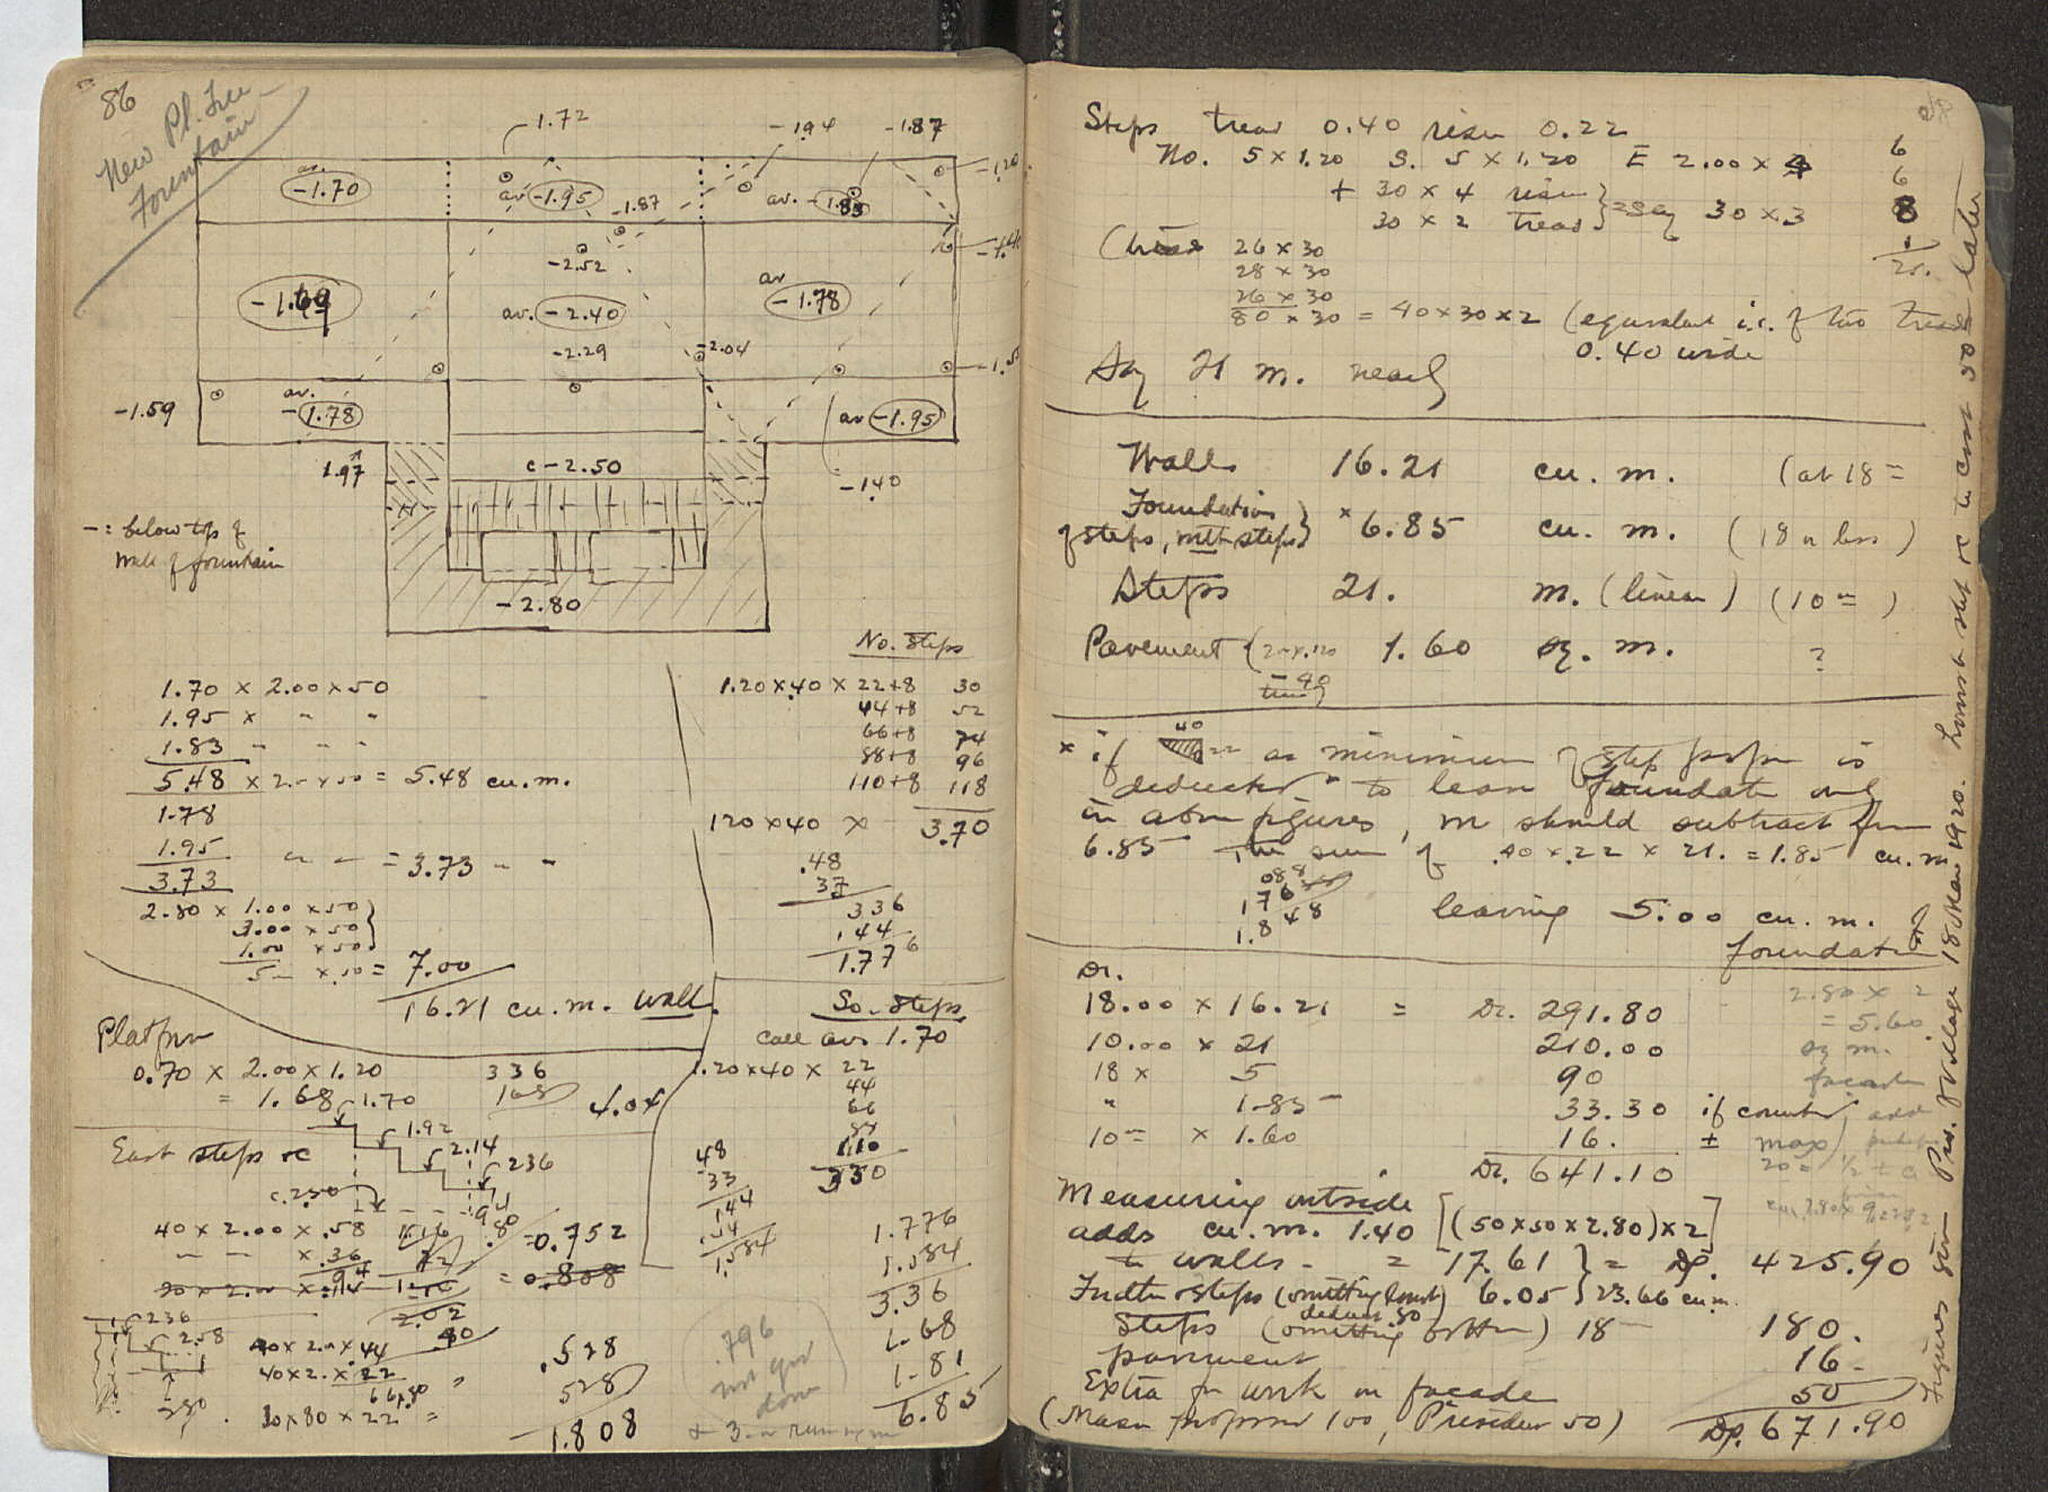 86
New Pl. Tree
Fountain
-1.72
-1.94
-1.87
-1.20
av.
-1.70
av -1.95
-1.87
av. -1.83
-2.52
-1.69
av. -2.40
av
-1.78
-2.29
-2.04
-1.59
av.
-1.78
av -1.95
1.97
c-2.50
-1.40
-: below top of
wall of fountain
-2.80
1.70 × 2.00 × 50
1.95 × " "
1.83 " " "
5.48 × 2.00 × 50 = 5.48 cu.m.
1.78
1.95
3.73 " " = 3.73 " "
2.80 × 1.00 × 50
3.00 × 50
1.00 × 50
5 — × 50 = 7.00
16.21 cu. m. wall
No. Steps
1.20 × .40 × 22+8 30
44+8 52
66+8 74
88+8 96
110+8 118
120 × 40 × 3.70
.48
37
336
144
1.776
Platform
0.70 × 2.00 × 1.20
= 1.68
336
168
4.04
So. Steps
Call av. 1.70
1.20 × 40 × 22
44
66
88
110
330
48
33
144
.54
1.584
East steps
1.70
1.92
2.14
236
c. 230
40 × 2.00 × .58
" " × .36
.94
.80 = 0.752
= 0.808
2.02
236
2.58
40 × 2.00 × 44
40 × 2. × 22
66 × .80
280
30 × 80 × 22 =
.528
528
1.808
.796
not good
down
1.776
1.584
3.36
1.68
1.81
6.85
Steps tread 0.40 riser 0.22
No. 5 × 1.20 S. 5 × 1.20 E 2.00 × 4
+ 30 × 4 riser
30 × 2 tread = say 30 × 3
6
6
8
1
21.
26 × 30
28 × 30
26 × 30
80 × 30 = 40 × 30 × 2 (equivalent i.e. of two treads
0.40 wide
Say 21 m. nearly
Walls 16.21 cu. m. (at 18 =
Foundations
of steps, with steps × 6.85 cu. m. (18 or less)
Steps 21. m. (linear) (10 =)
Pavement 1.60 sq. m. ?
× if 40 22 as minimum of step proper is
deducted to leave foundation only
in above figures, we should subtract from
6.85 the sum of .40 × .22 × 21. = 1.85 cu. m
088
176
1.848
leaving 5.00 cu. m.
foundation
Dr.
18.00 × 16.21 = Dr. 291.80
10.00 × 21 210.00
18 × 5 90
" 1.85 33.30 if counted
10 = × 1.60 16. ± max
Dr. 641.10
2.80 × 2
= 5.60
sq m.
facade
add
Measuring outside
adds cu. m. 1.40 [(50 × 50 × 2.80) × 2]
to walls - = 17.61 = Dp. 425.90
Fndtn steps (omitting lowest) 6.05 23.66 cu m.
deduct .80
Steps (omitting bottom) 18 — 180.
pavement 16 -
Extra for work on facade 50
(Mason proposed 100, President 50) Dp. 671.90
Figures given Pres. of Village 18 Mar 1920. lowest step etc to cost 50 later